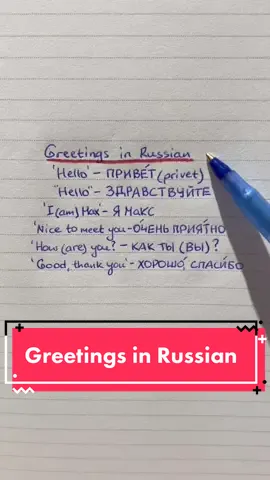 Greetings in Russian
'Hello' - ПРИВЕ́Т (privet)
"Hello" - ЗДРАВСТВУЙТЕ
'I (am) Max' - Я МАКС
'Nice to meet you - О́ЧЕНЬ ПРИЯ́ТНО
'How (are) you? - КАК ТЫ (ВЫ)?
'Good, thank you' - ХОРОШО́ СПАСИ́БО
Greetings in Russian